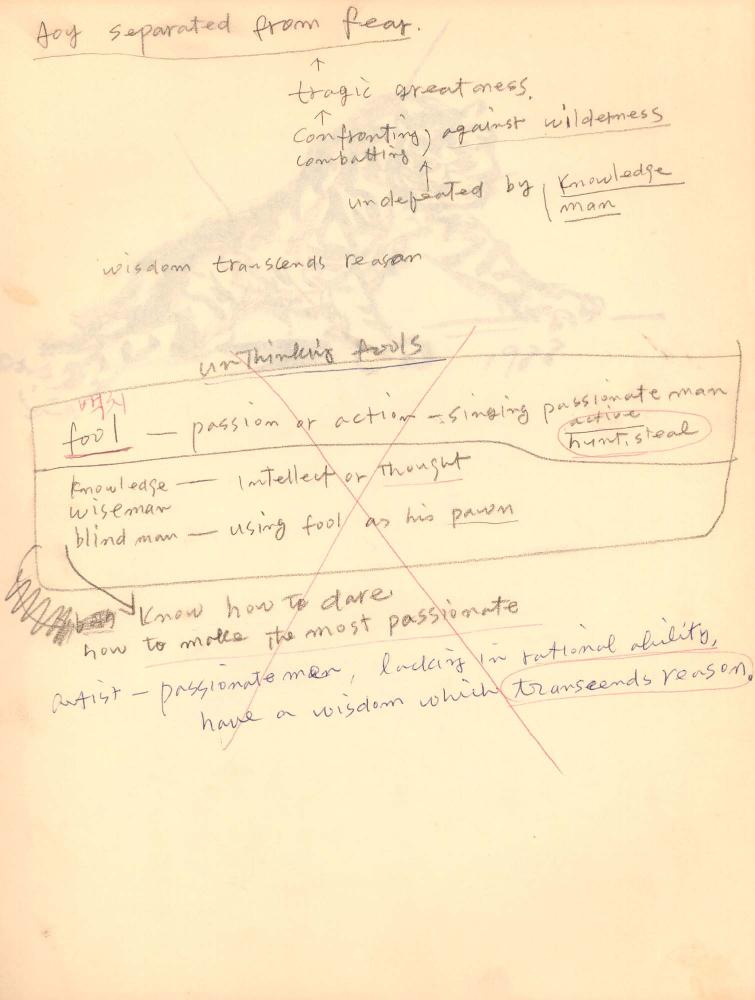 Joy separated from fear.
↑
tragic greatness.
↑
confronting, against wilderness
combatting
↑
undefeated by (knowledge
man
wisdom transcends reason
unthinking fools
백치
fool — passion or action - singing passionate man
active
hunt, steal
Knowledge — Intellect or Thought
wiseman
blind man — using fool as his pawn
Know how to dare
how to make the most passionate
artist — passionate men, lacking in rational ability,
have a wisdom which transcends reason.